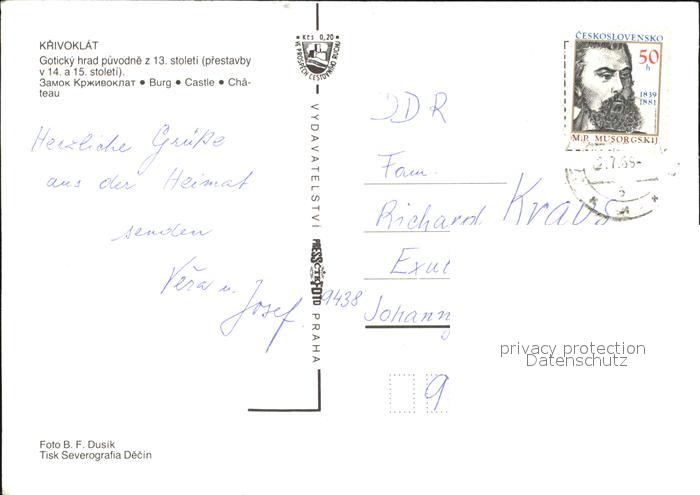 KŘIVOKLÁT
Gotický hrad původně z 13. století (přestavby
v 14. a 15. století).
Замок Крживоклат ● Burg ● Castle ● Châ-
teau
Herzliche Grüße
aus der Heimat
senden
Věra u. Josef
Foto B. F. Dusík
Tisk Severografia Děčín
Kčs 0,20
VE PROSPĚCH CESTOVNÍHO RUCHU
VYDAVATELSTVÍ
PRESSFOTO
PRAHA
ČESKOSLOVENSKO
50
h
1839
1881
M.P. MUSORGSKIJ
DDR
Fam.
Richard Kraus
9438 Johann
9
privacy protection
Datenschutz